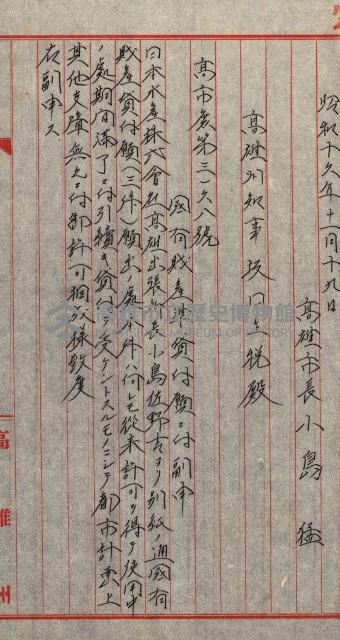 昭和十六年十一月十九日
高雄市長小島猛
高雄州知事坂口主税殿
高市產第三一六八號
國有財產貸付願ニ付副申
日本水產株式會社高雄出張所長小島佐野吉ヨリ別紙ノ通國有
財產貸付願(三件)願出ノ處本件ハ何レモ從來許可ヲ得テ使用中
ノ處期間滿了ニ付引續キ貸付ヲ受ケントスルモノニシテ都市計畫上
其他支障無之ニ付御許可相成樣致度
右副申ス
高雄州